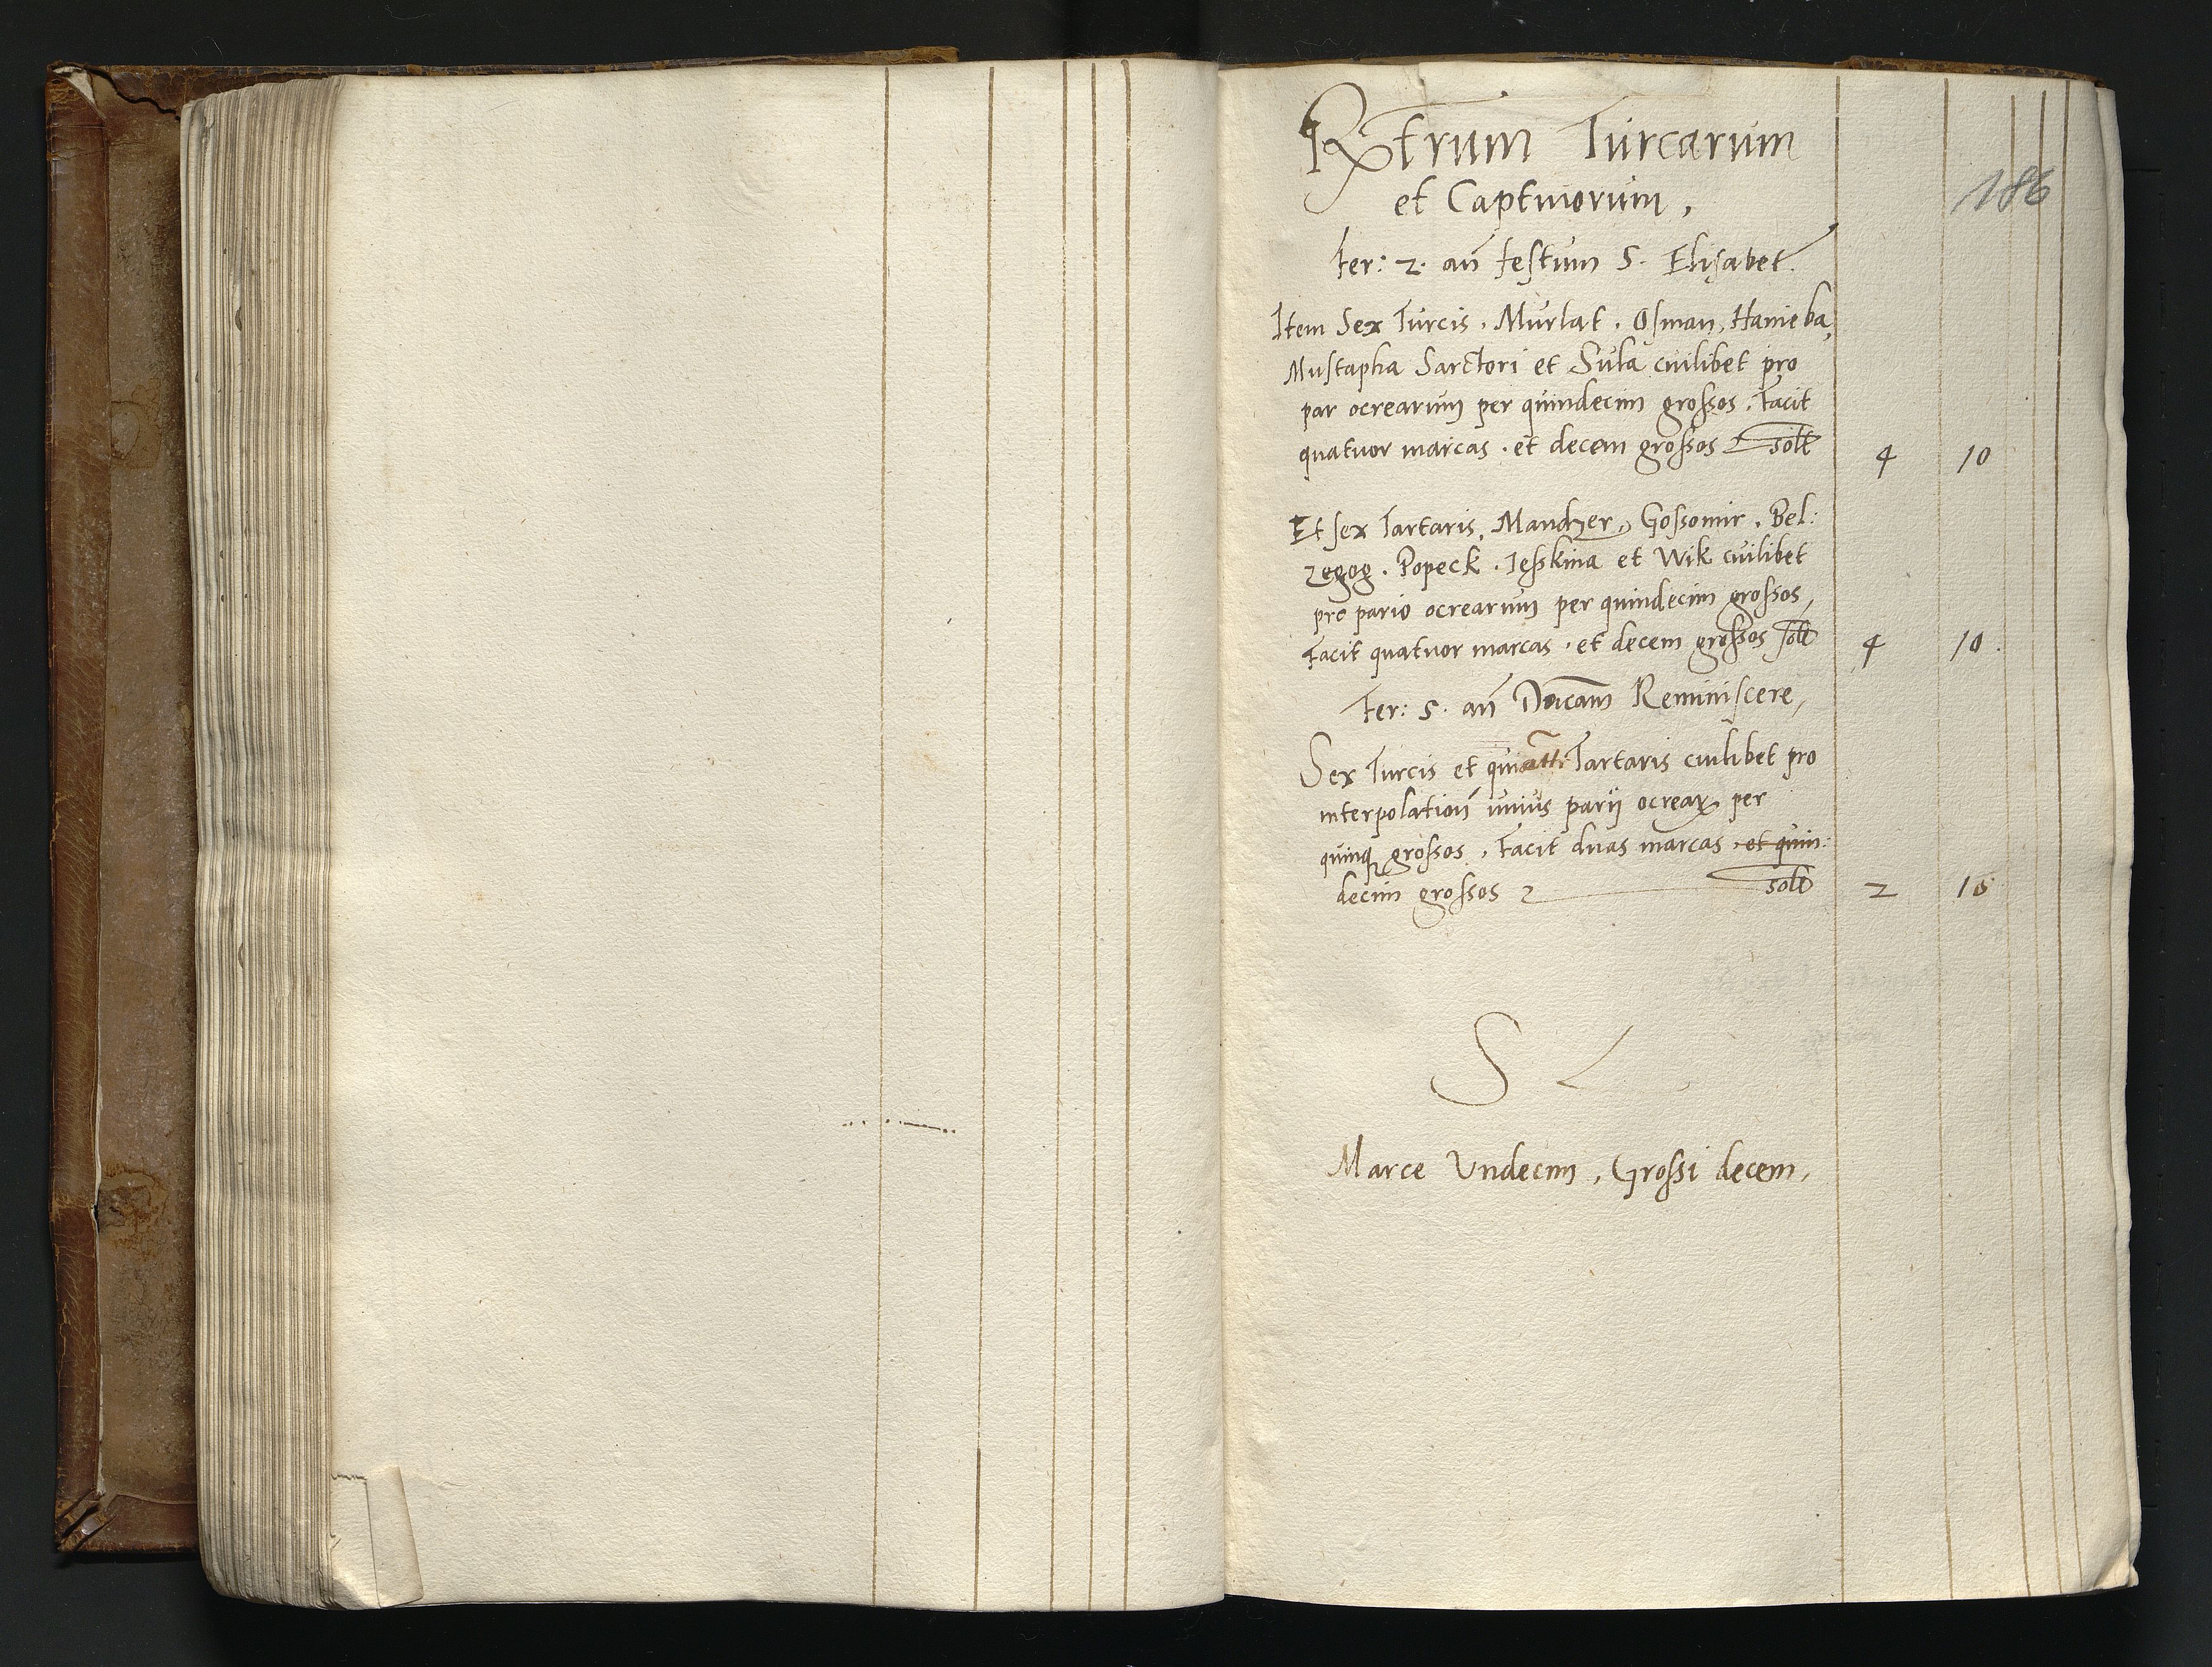 Rxtrum Turcarum
et Captiuorum,
186
fer: 2. añ festum S. Elisabet.
Item Sex Turcis. Murlat. Osman, Hanieba,
Mustapha Sarctori et Sula cuilibet pro
par ocrearum per quindecim grossos. Facit
quatuor marcas. et decem grossos solt 4 10
Et sex Tartaris, Mandzer, Gossomir. Bel:
zegog. Popeck. Jesskina et Wik cuilibet
pro pario ocrearum per quindecim grossos,
Facit quatuor marcas. et decem grossos solt 4 10.
Fer: 5. añ Dñicam Reminiscere,
Sex Turcis et Tartaris cuilibet pro
interpolation̄ unius parij ocrearꝝ per
quinqꝫ grossos, Facit duas marcas et quin:
decim grossos solt 2
S
Marce Vndecim, Grossi decem,